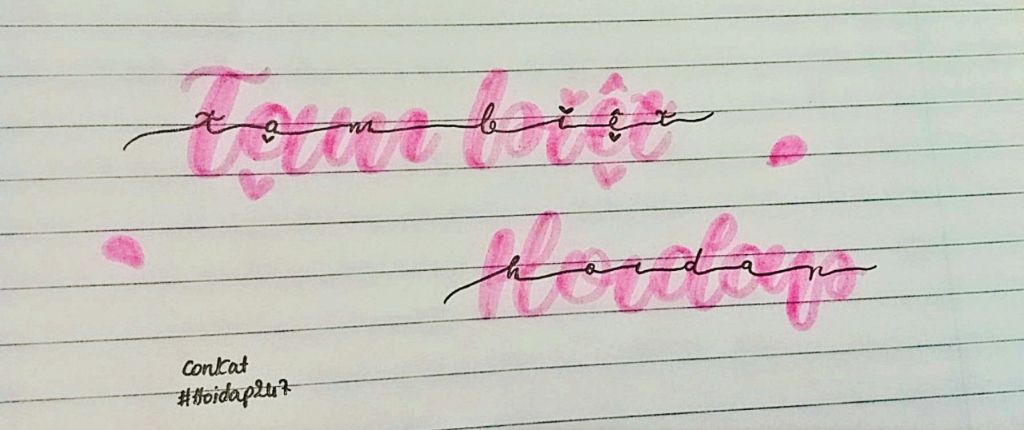 Tạm biệt
tạm biệt
Hoidap
hoidap
ConKat
#Hoidap247